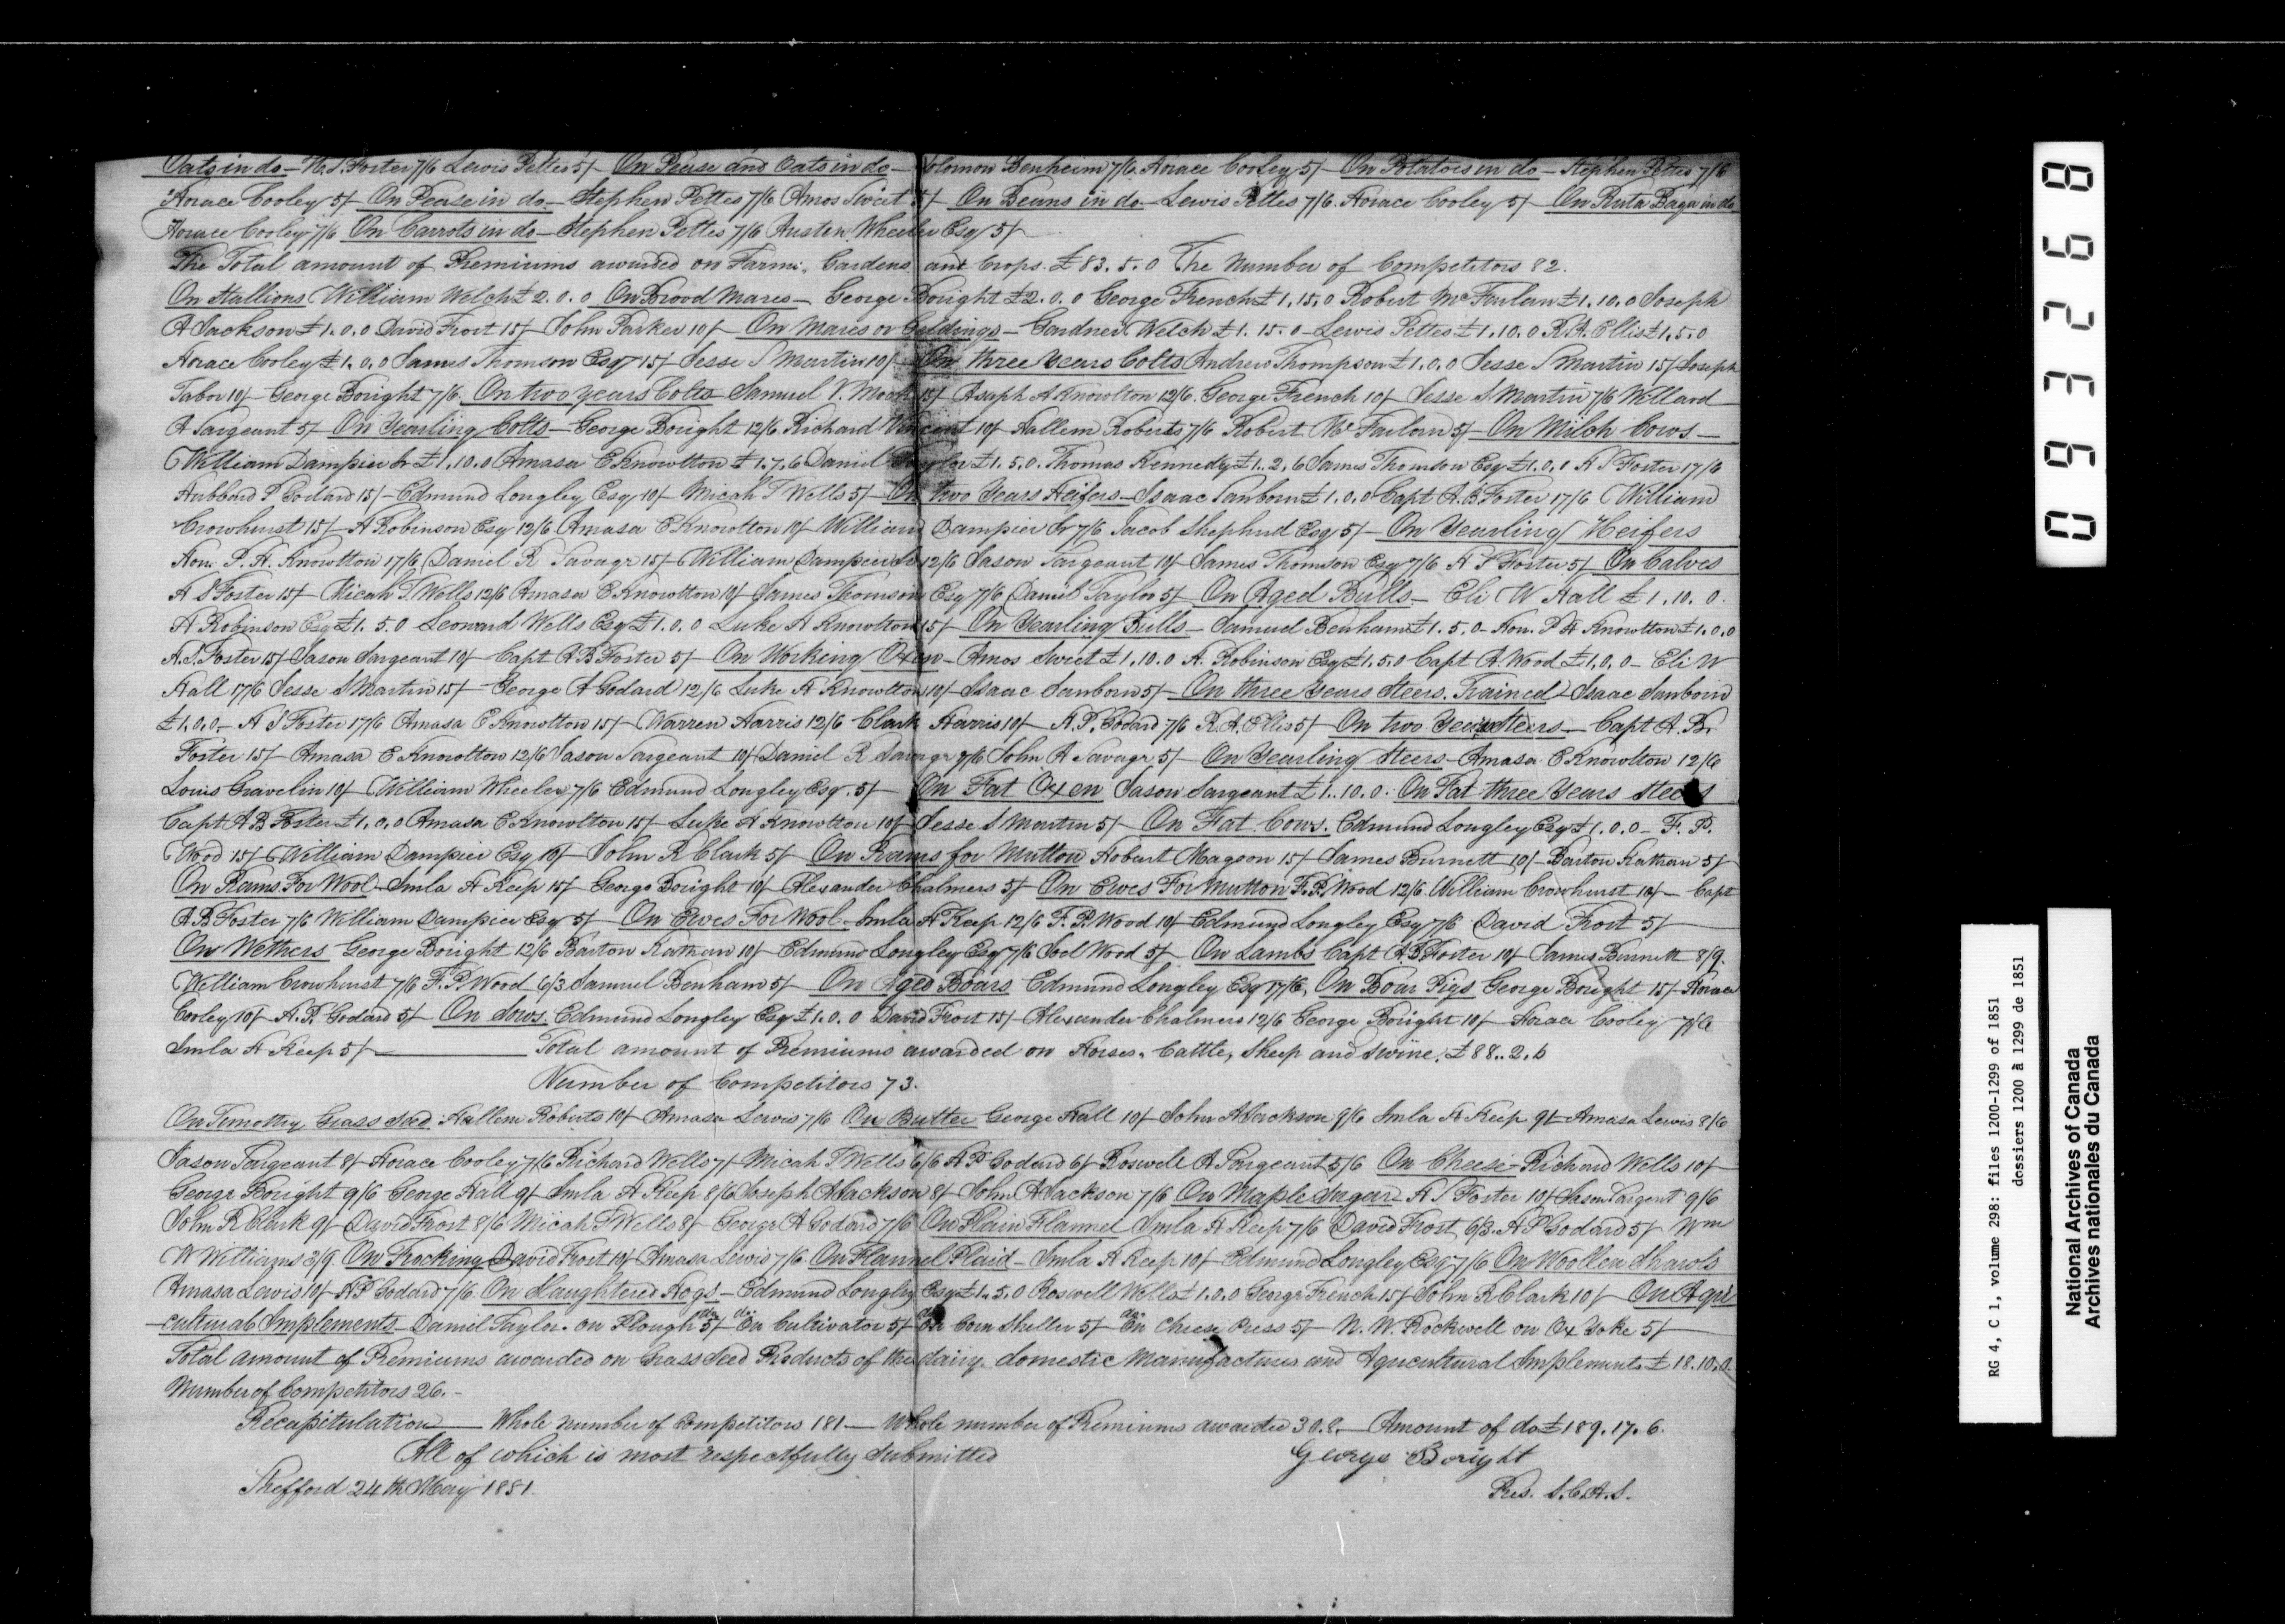 Oats in do – H. S. Foster 7/6 Lewis Pettes 5/– On Pease and Oats in do – Solomon Benheim 7/6. Horace Cooley 5/– On Potatoes in do – Stephen Pettes 7/6
Horace Cooley 5/– On Pease in do – Stephen Pettes 7/6 Amos Sweet 5/– On Beans in do – Lewis Pettes 7/6. Horace Cooley 5/– On Ruta Baga in do
Horace Cooley 7/6 On Carrots in do – Stephen Pettes 7/6 Austin Wheeler Esq 5/–
The Total amount of Premiums awarded on Farms, Gardens, and Crops. £83.5.0 The Number of Competitors 82.
On Stallions William Welch £2.0.0 On Brood Mares – George Boright £2.0.0 George French £1.15.0 Robert McFarlan £1.10.0 Joseph
A Jackson £1.0.0 David Frost 15/– John Parker 10/– On Mares or Geldings – Gardner Welch £1.15.0 – Lewis Pettes £1.10.0 R. A. Ellis £1.5.0
Horace Cooley £1.0.0 James Thomson Esqr 15/– Jesse S Martin 10/– On three years Colts Andrew Thompson £1.0.0 Jesse S Martin 15/– Joseph
Tabor 10/– George Boright 7/6. On two years Colts Samuel V. 15/– Asaph A Knowlton 12/6. George French 10/– Jesse S Martin 7/6 Willard
A Sargeant 5/– On Yearling Colts – George Boright 12/6. Richard Vincent 10/– Hallem Roberts 7/6 Robert McFarlan 5/– On Milch Cows –
William Dampier Sr £1.10.0 Amasa E Knowlton £1.7.6 Daniel Taylor £1.5.0. Thomas Kennedy £1.2.6 James Thomson Esq £1.0.0 H S Foster 17/6
Hubbard P Godard 15/– Edmund Longley Esq 10/– Micah T Wells 5/– On two Years Heifers – Isaac Sanborn £1.0.0 Capt A. B Foster 17/6 William
Crowhurst 15/– A Robinson Esq 12/6 Amasa E Knowlton 10/– William Dampier Sr 7/6 Jacob Shepherd Esq 5/– On Yearling Heifers
Hon. P. H. Knowlton 17/6 Daniel R Savage 15/– William Dampier Sr 12/6 Jason Sargeant 10/– James Thomson Esq 7/6 H S Foster 5/– On Calves
H S Foster 15/– Micah T. Wells 12/6 Amasa E Knowlton 10/– James Thomson Esq 7/6 Daniel Taylor 5/– On Aged Bulls – Eli W Hall £1.10.0.
A Robinson Esq £1.5.0 Leonard Wells Esq £1.0.0 Luke H Knowlton 15/– On Yearling Bulls – Samuel Benham £1.5.0 – Hon. P H Knowlton £1.0.0
H. S. Foster 15/– Jason Sargeant 10/– Capt A B Foster 5/– On Working Oxen – Amos Sweet £1.10.0 A. Robinson Esq £1.5.0 Capt A. Wood £1.0.0 – Eli W
Hall 17/6 Jesse S Martin 15/– George A Godard 12/6 Luke H Knowlton 10/– Isaac Sanborn 5/– On three years Steers. Trained – Isaac Sanborn
£1.0.0 – H S Foster 17/6 Amasa E Knowlton 15/– Warren Harris 12/6 Clark Harris 10/– H. P. Godard 7/6 R. A. Ellis 5/– On two Years Steers – Capt A. B.
Foster 15/– Amasa E Knowlton 12/6 Jason Sargeant 10/– Daniel R Savage 7/6 John A Savage 5/– On Yearling Steers – Amasa E Knowlton 12/6
Louis Gravelin 10/– William Wheeler 7/6 Edmund Longley Esq. 5/– On Fat Oxen Jason Sargeant £1.10.0. On Fat three Years Steers
Capt A B Foster £1.0.0 Amasa E Knowlton 15/– Luke H Knowlton 10/– Jesse S Martin 5/– On Fat Cows. Edmund Longley Esq £1.0.0 – F. P.
Wood 15/– William Dampier Esq 10/– John R Clark 5/– On Rams for Mutton Hobart Magoon 15/– James Burnett 10/– Barton Rathan 5/–
On Rams For Wool – Imla H Keep 15/– George Boright 10/– Alexander Chalmers 5/– On Ewes For Mutton F. P. Wood 12/6. William Crowhurst 10/– Capt
A. B Foster 7/6 William Dampier Esq 5/– On Ewes For Wool – Imla H Keep 12/6 F. P. Wood 10/– Edmund Longley Esq 7/6 David Frost 5/–
On Wethers George Boright 12/6 Barton Rathan 10/– Edmund Longley Esq 7/6 Joel Wood 5/– On Lambs Capt A. B Foster 10/– James Burnett 8/9.
William Crowhurst 7/6 F. P. Wood 6/3. Samuel Benham 5/– On Aged Boars Edmund Longley Esq 17/6, On Boar Pigs George Boright 15/– Horace
Cooley 10/– H. P. Godard 5/– On Sows. Edmund Longley Esq £1.0.0 David Frost 15/– Alexander Chalmers 12/6 George Boright 10/– Horace Cooley 7/6
Imla H Keep 5/– Total amount of Premiums awarded on Horses, Cattle, Sheep and Swine. £88..2.6
Number of Competitors 73.
On Timothy Grass Seed. Hallem Roberts 10/– Amasa Lewis 7/6 On Butter George Hall 10/– John A Jackson 9/6 Imla H Keep 9/– Amasa Lewis 8/6
Jason Sargeant 8/– Horace Cooley 7/6 Richard Wells 7/– Micah T Wells 6/6 H P Godard 6/– Roswell A Sargeant 5/6 On Cheese – Richard Wells 10/–
George Boright 9/6 George Hall 9/– Imla H Keep 8/6 Joseph A Jackson 8/– John A Jackson 7/6 On Maple Sugar – H S Foster 10/– Jason Sargent 9/6
John R Clark 9/– David Frost 8/6 Micah T Wells 8/– George A Godard 7/6 On Plain Flannel Imla H Keep 7/6 David Frost 6/3. H P Godard 5/– Wm
W Williams 3/9. On Frocking David Frost 10/– Amasa Lewis 7/6. On Flannel Plaid – Imla H Keep 10/– Edmund Longley Esq 7/6 On Woollen Shawls
Amasa Lewis 10/– H P Godard 7/6. On Slaughtered Hogs – Edmund Longley Esq £1.5.0 Roswell Wells £1.0.0 George French 15/– John R Clark 10/– On Agri
cultural Implements – Daniel Taylor. on Plough 5/– do On Cultivator 5/– do On Corn Sheller 5/– do On Cheese Press 5/– N. W. Rockwell on Ox Yoke 5/–
Total amount of Premiums awarded on Grass Seed Products of the dairy. domestic Manufactures and Agricultural Implements £18.10.0.
Number of Competitors 26. –
Recapitulation – Whole number of Competitors 181 – Whole number of Premiums awarded 308. – Amount of do £189.17.6.
All of which is most respectfully submitted
George Boright
Shefford 24th May 1851.
Pres. S.C.A.S.
093268
RG 4, C 1, volume 298: files 1200-1299 of 1851
dossiers 1200 à 1299 de 1851
National Archives of Canada
Archives nationales du Canada